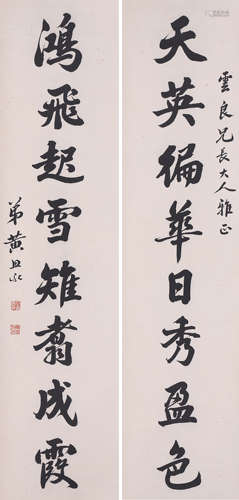 雲良兄長大人雅正
天英徧華日秀盈色
鴻飛起雪雉翥成霞
弟黃自元